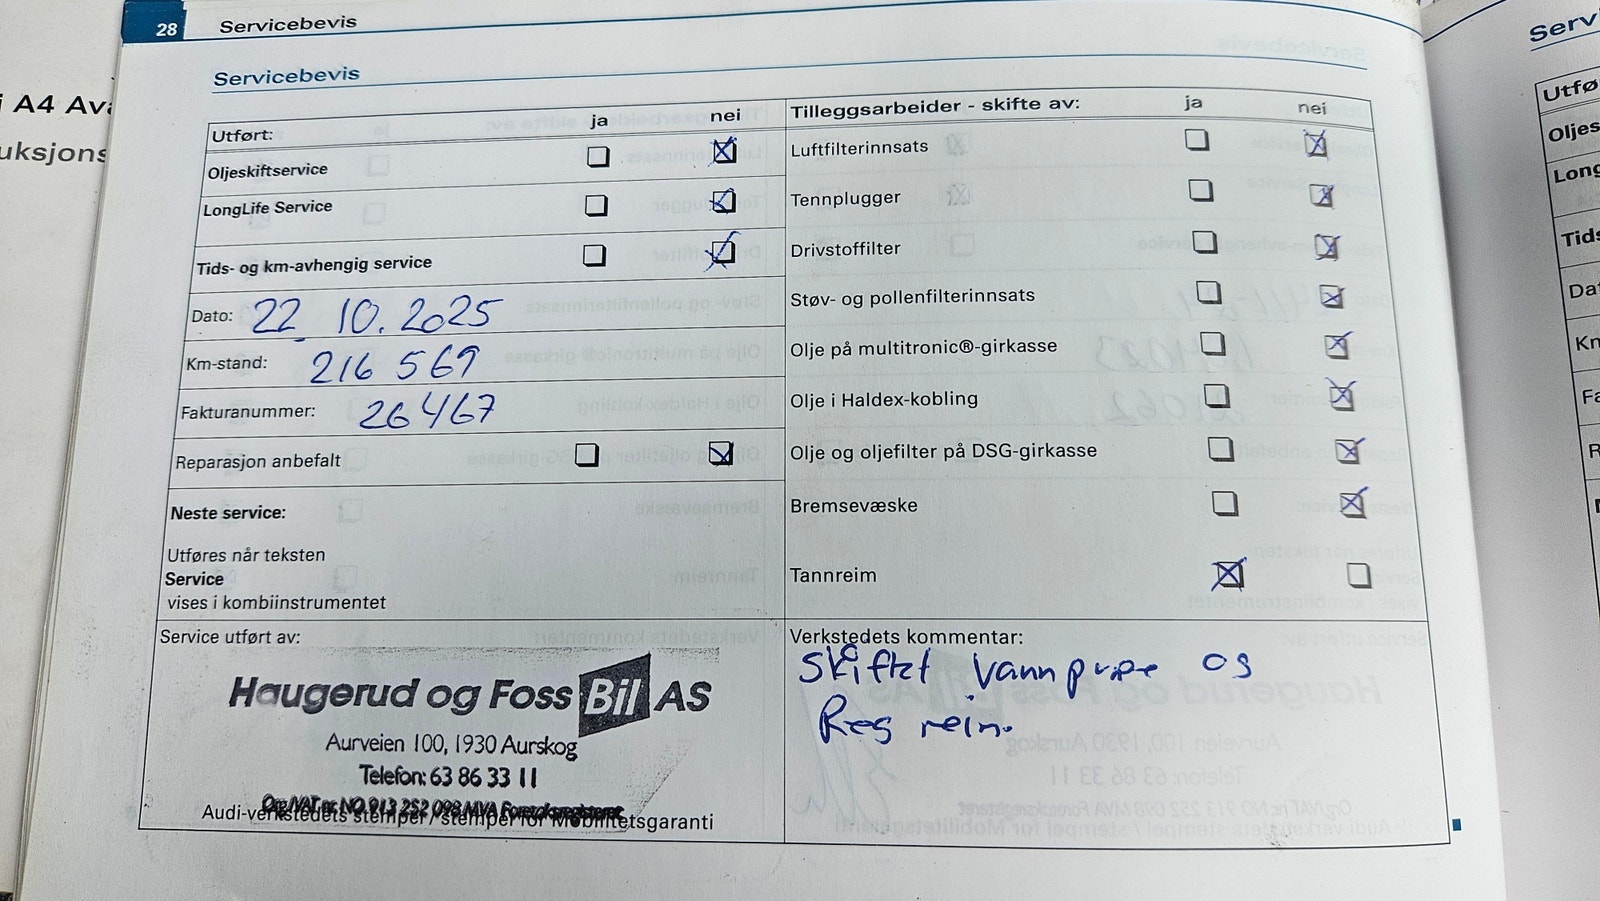 28 Servicebevis
Servicebevis
Utført: ja nei
Oljeskiftservice
LongLife Service
Tids- og km-avhengig service
Dato: 22.10.2025
Km-stand: 216 569
Fakturanummer: 26467
Reparasjon anbefalt
Neste service:
Utføres når teksten
Service
vises i kombiinstrumentet
Service utført av:
Haugerud og Foss Bil AS
Aurveien 100, 1930 Aurskog
Telefon: 63 86 33 11
Org/VAT nr NO 913 252 098 MVA Foretaksregisteret
Audi-verkstedets stempel / stempel for Mobilitetsgaranti
Tilleggsarbeider - skifte av: ja nei
Luftfilterinnsats
Tennplugger
Drivstoffilter
Støv- og pollenfilterinnsats
Olje på multitronic®-girkasse
Olje i Haldex-kobling
Olje og oljefilter på DSG-girkasse
Bremsevæske
Tannreim
Verkstedets kommentar:
Skiftet vannpumpe og
Reg reim.
i A4 Ava
uksjons
Serv
Utfø
Oljes
Long
Tids
Dat
Km
Fa
R